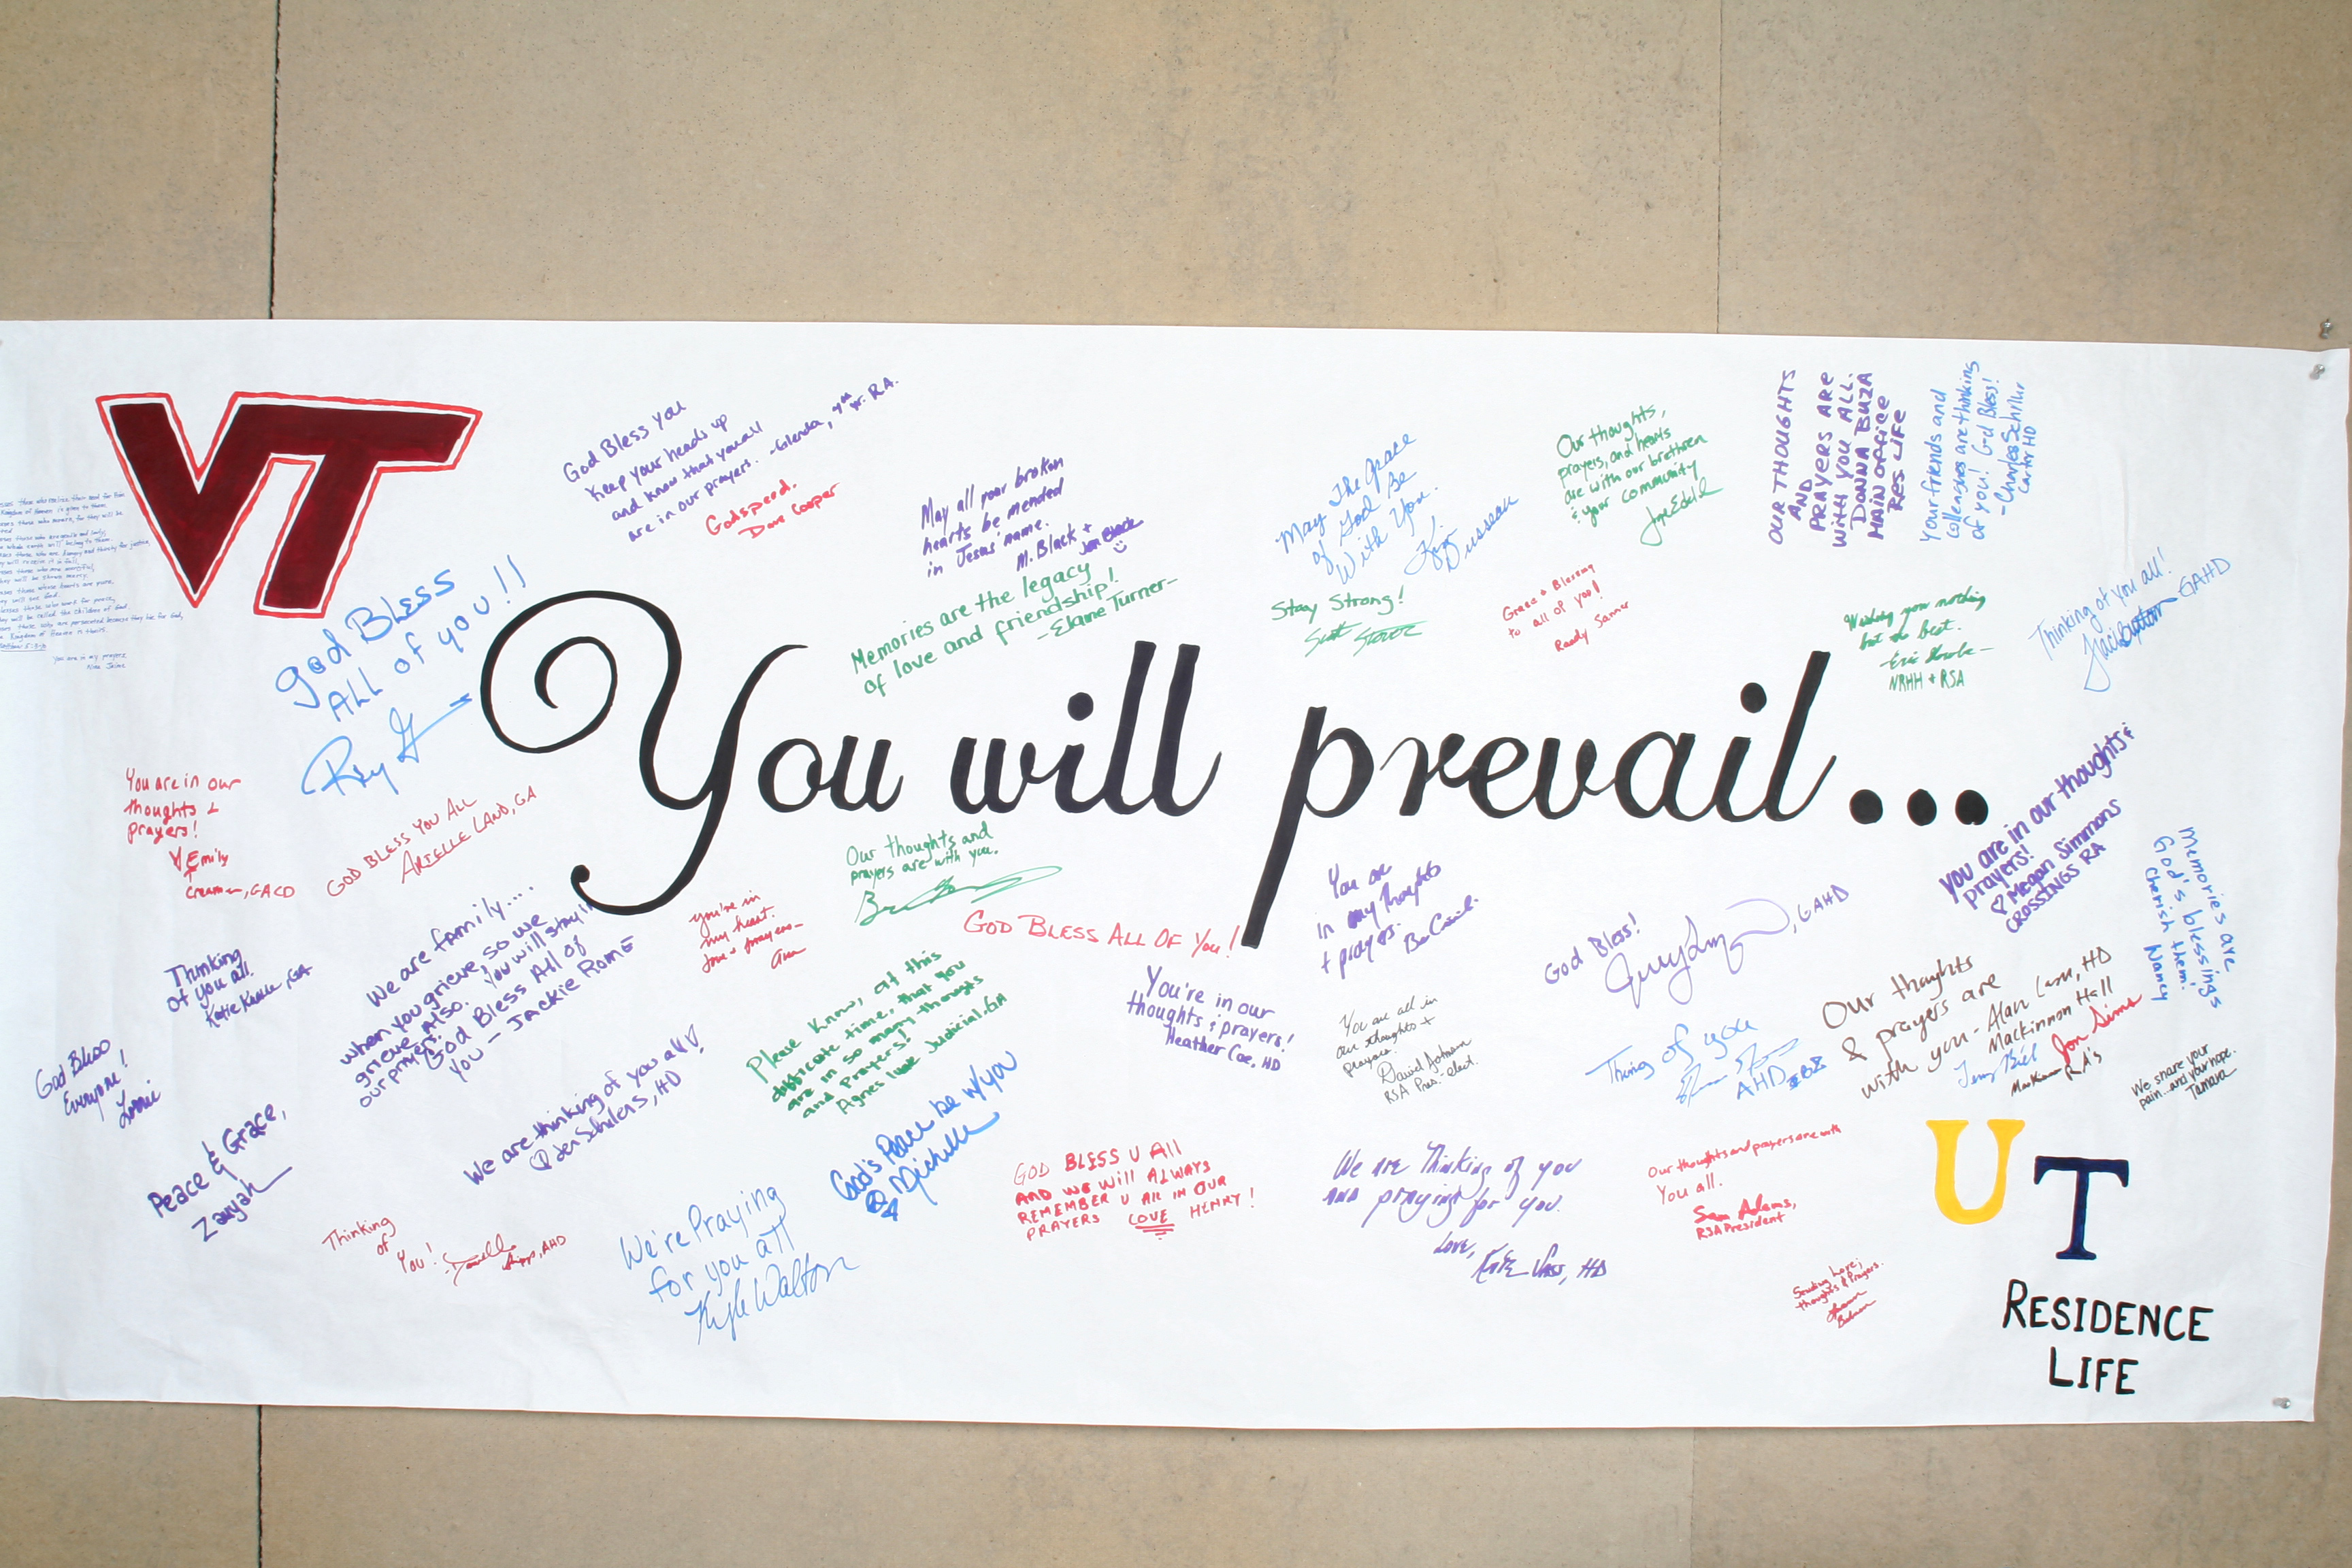 VT
God Bless you
Keep your heads up
and know that you all
are in our prayers. -Glenda, RA.
Godspeed.
Dave Cooper
May all your broken
hearts be mended
in Jesus' name.
M. Black +
Jen Black
Memories are the legacy
of love and friendship!
-Elaine Turner-
May The Grace
of God Be
With You.
Stay Strong!
Our thoughts,
prayers, and hearts
are with our brethren
& your community
Grace + Blessing
to all of you!
Randy Sanner
OUR THOUGHTS
AND
PRAYERS ARE
WITH YOU ALL.
DONNA BUZA
MAIN OFFICE
RES LIFE
Your friends and
colleagues are thinking
of you! God Bless!
-Charles
Carter HD
Wishing you nothing
but the best.
NRHH + RSA
Thinking of you all!
GAHD
those who mourn, for they will be
whole earth will belong to them.
those who are hungry and thirsty for justice,
those who are merciful,
they will be shown mercy.
those whose hearts are pure,
those who work for peace,
they will be called the children of God.
those who are persecuted because they live for God,
Kingdom of Heaven is theirs.
You are in my prayers
God Bless
ALL of you!!
You will prevail...
You are in our
thoughts +
prayers!
Emily
Creamer, GACD
GOD BLESS YOU ALL
ARIELLE LAND, GA
We are family....
when you grieve, so we
grieve also. You will stay in
our prayers.
God Bless All of
you - JACKIE ROME
Thinking
of you all.
Katie GA
God Bless
Everyone!
Peace & Grace,
Zaiyah
We are thinking of you all!
Jen Schulers, HD
Thinking
of
You!
AHD
you're in
my heart.
love + prayers-
Our thoughts and
prayers are with you.
GOD BLESS ALL OF You!
Please Know, at this
difficult time, that you
are in so many thoughts
and Prayers!
Agnes Judicial, GA
God's Peace be w/you
Michelle
We're Praying
for you all
Kyle Walton
GOD BLESS U All
AND WE WILL ALWAYS
REMEMBER U All IN OUR
PRAYERS LOVE HENRY!
You're in our
thoughts & prayers!
Heather Coe, HD
You are
in my thoughts
+ prayers.
You are all in
our thoughts +
prayers.
David
RSA Pres.-elect.
We are Thinking of you
AND praying for you.
Love,
HD
God Bless!
GAHD
Thing of you
AHD
Our thoughts
& prayers are
with you - Alan HD
Mackinnon Hall
Jon Sims
RA's
you are in our thoughts &
prayers!
♡ Megan Simmons
CROSSINGS RA
Memories are
God's blessings
Cherish them.
Nancy
We share your
pain...and your hope.
Tamara
Our thoughts and prayers are with
You all.
Sam Adams,
RSA President
Sending Love,
thoughts & Prayers.
UT
RESIDENCE
LIFE